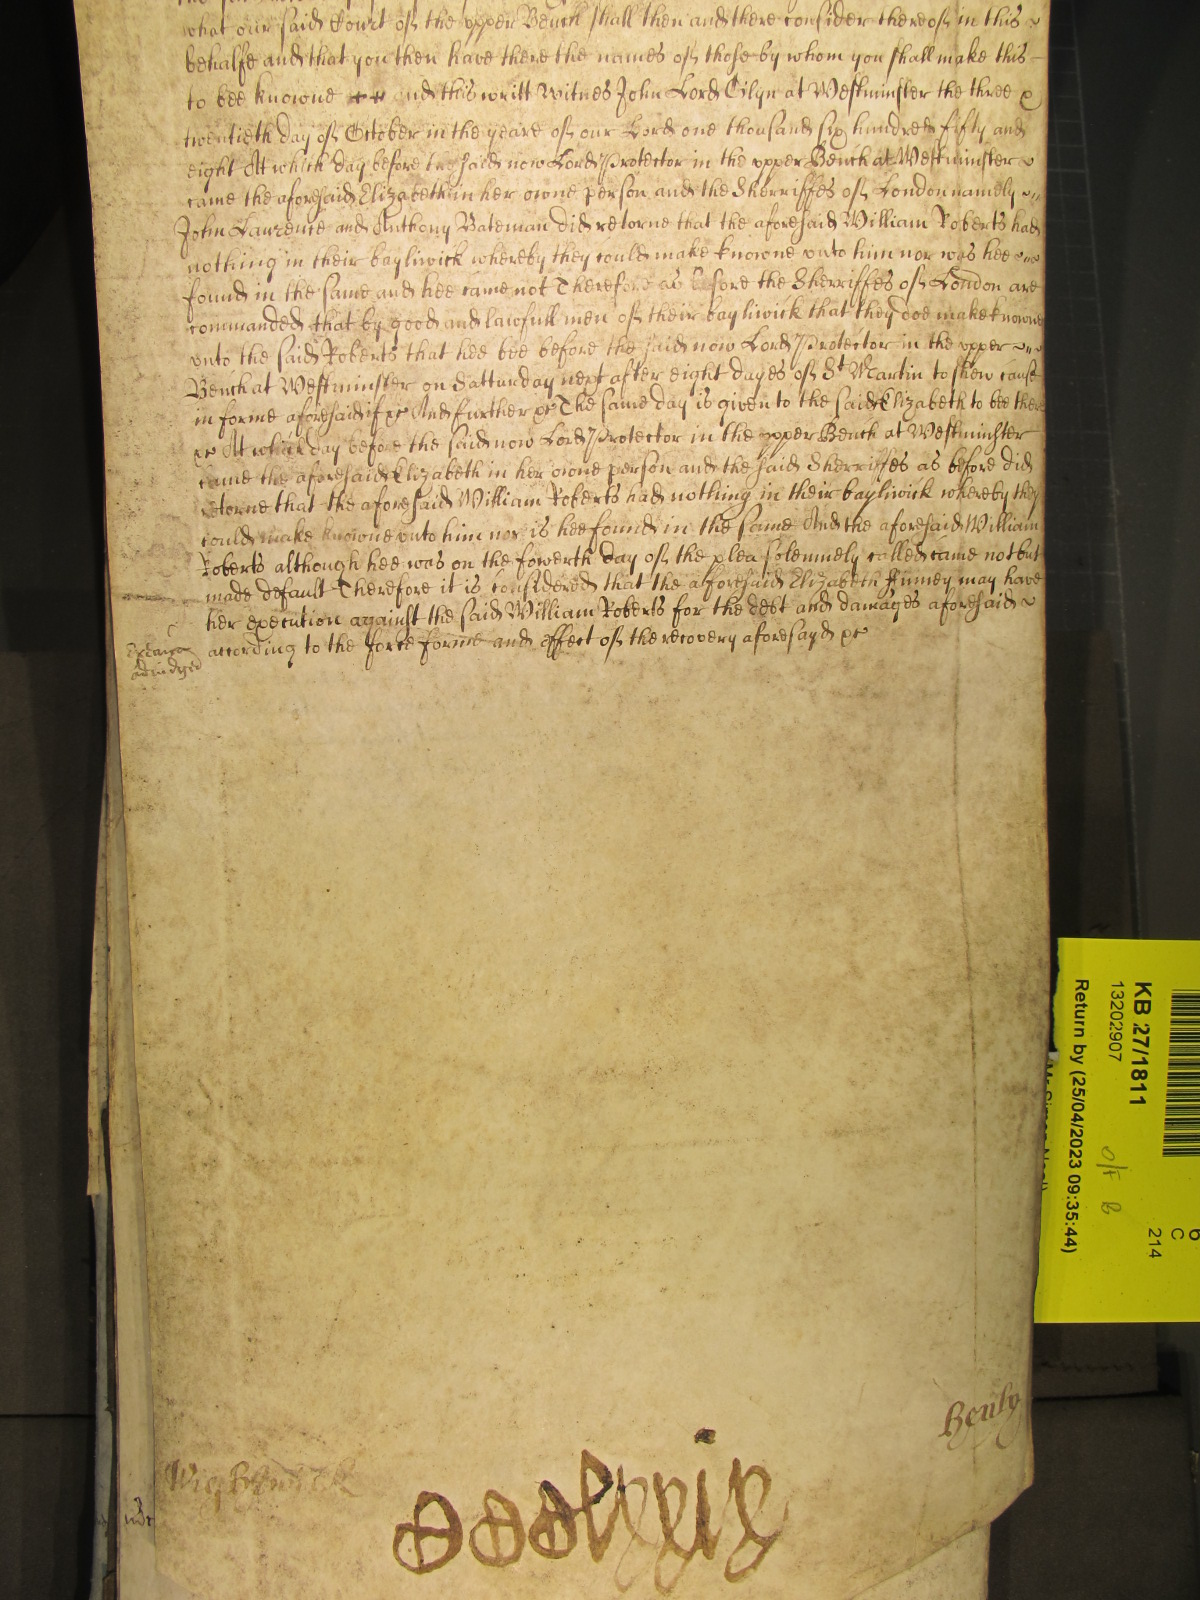 what our said Court of the upper Bench shall then and there consider thereof in this
behalfe and that you then have there the names of those by whom you shall make this
to bee knowne and this writt Witnes John Lord Glyn at Westminster the three
twentieth day of October in the yeare of our Lord one thousand six hundred fifty and
eight At which day before the said now Lord Protector in the upper Bench at Westminster
came the aforesaid Elizabeth in her owne person and the Sherriffes of London namely
John Lawrence and Anthony Bateman did retorne that the aforesaid William Roberts had
nothing in their bayliwick whereby they could make knowne unto him nor was hee
found in the same and hee came not Therefore as before the Sherriffes of London are
commanded that by good and lawfull men of their bayliwick that they doe make knowne
unto the said Roberts that hee bee before the said now Lord Protector in the upper
Bench at Westminster on Satturday next after eight dayes of St Martin to shew cause
in forme aforesaid if &c And further &c The same day is given to the said Elizabeth to bee there
&c At which day before the said now Lord Protector in the upper Bench at Westminster
came the aforesaid Elizabeth in her owne person and the said Sherriffes as before did
retorne that the aforesaid William Roberts had nothing in their bayliwick whereby they
could make knowne unto him nor is hee found in the same And the aforesaid William
Roberts although hee was on the fowerth day of the plea solemnely called came not but
made default Therefore it is considered that the aforesaid Elizabeth Finney may have
her execution against the said William Roberts for the debt and damages aforesaid
according to the force forme and effect of the recovery aforesayd &c
adjudged
KB 27/1811
13202907
Return by (25/04/2023 09:35:44)
6
C
214
Henly
Wightwick